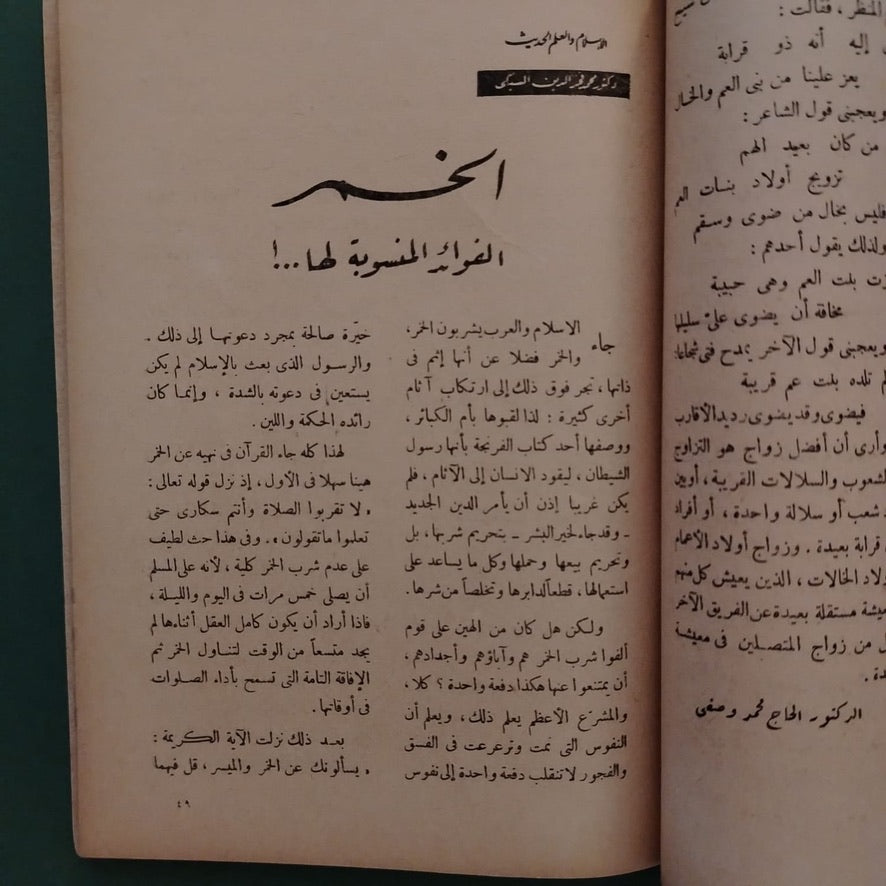 الاسلام والعلم الحديث
دكتور محمد فخر الدين السبكى
الخمر
الفوائد المنسوبة لها...!
جاء الاسلام والعرب يشربون الخمر،
والخمر فضلا عن أنها إثم فى
ذاتها، تجر فوق ذلك إلى ارتكاب آثام
أخرى كثيرة : لذا لقبوها بأم الكبائر،
ووصفها أحد كتاب الفرنجة بأنها رسول
الشيطان، ليقود الانسان إلى الآثام، فلم
يكن غريبا إذن أن يأمر الدين الجديد
ـ وقد جاء لخير البشر ـ بتحريم شربها، بل
وتحريم بيعها وحملها وكل ما يساعد على
استعمالها، قطعاً لدابرها وتخلصاً من شرها.
ولكن هل كان من الهين على قوم
ألفوا شرب الخمر هم وآباؤهم وأجدادهم،
أن يمتنعوا عنها هكذا دفعة واحدة ؟ كلا،
والمشرّع الأعظم يعلم ذلك، ويعلم أن
النفوس التى نمت وترعرعت فى الفسق
والفجور لا تنقلب دفعة واحدة إلى نفوس
خيّرة صالحة بمجرد دعوتها إلى ذلك .
والرسول الذى بعث بالإسلام لم يكن
يستعين فى دعوته بالشدة ، وإنما كان
رائده الحكمة واللين .
لهذا كله جاء القرآن فى نهيه عن الخمر
هينا سهلا فى الأول، إذ نزل قوله تعالى :
« لا تقربوا الصلاة وأنتم سكارى حتى
تعلموا ما تقولون ». وفى هذا حث لطيف
على عدم شرب الخمر كلية ، لأنه على المسلم
أن يصلى خمس مرات فى اليوم والليلة ،
فاذا أراد أن يكون كامل العقل أثناءها لم
يجد متسعاً من الوقت لتناول الخمر ثم
الإفاقة التامة التى تسمح بأداء الصلوات
فى أوقاتها .
بعد ذلك نزلت الآية الكريمة :
« يسألونك عن الخمر والميسر ، قل فيهما
٤٩
المنظر ، فقالت :
إليه أنه ذو قرابة
يعز علينا من بنى العم والخال
ويعجبنى قول الشاعر :
من كان بعيد الهم
تزويج أولاد بنات العم
فليس بخال من ضوى وسقم
ولذلك يقول أحدهم :
بنت العم وهى حبيبة
مخافة أن يضوى علىّ سليلها
ويعجبنى قول الآخر يمدح فتى شجاعا :
تلده بنت عم قريبة
فيضوى وقد يضوى رديد الأقارب
وأرى أن أفضل زواج هو التزاوج
الشعوب والسلالات القريبة ، أو بين
شعب أو سلالة واحدة ، أو أفراد
قرابة بعيدة . وزواج أولاد الأعمام
الخالات ، الذين يعيش كل منهم
معيشة مستقلة بعيدة عن الفريق الآخر
من زواج المتصلين فى معيشة
الدكتور الحاج محمد وصفى